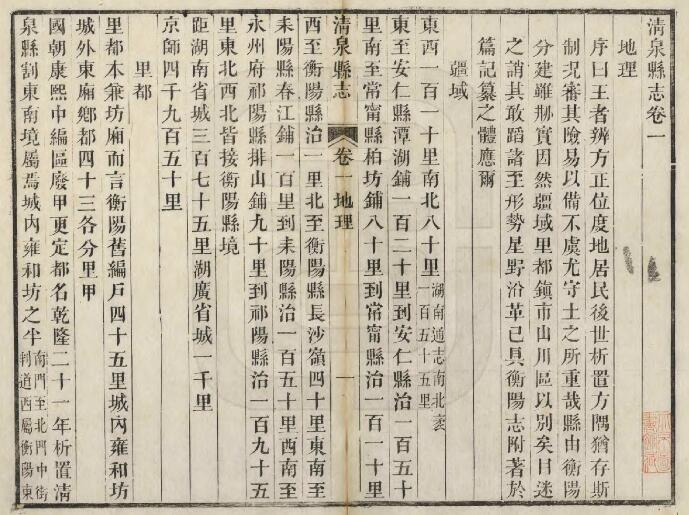 清泉縣志卷一
地理
序曰王者辨方正位度地居民後世析置方隅猶存斯
制況審其險易以備不虞尤守土之所重哉縣由衡陽
分建雖刱實因然疆域里都鎮市山川區以別矣目迷
之誚其敢蹈諸至形勢星野沿革已具衡陽志附著於
篇記纂之體應爾
疆域
東西一百一十里南北八十里湖南通志南北袤一百五十五里
東至安仁縣潭湖鋪一百二十里到安仁縣治一百五十
里南至常甯縣柏坊鋪八十里到常甯縣治一百一十里
清泉縣志 卷一地理 一
西至衡陽縣治一里北至衡陽縣長沙嶺四十里東南至
耒陽縣春江鋪一百里到耒陽縣治一百五十里西南至
永州府祁陽縣排山鋪九十里到祁陽縣治一百九十五
里東北西北皆接衡陽縣境
距湖南省城三百七十五里湖廣省城一千里
京師四千九百五十里
里都
里都本兼坊廂而言衡陽舊編戶四十五里城內雍和坊
城外東廂鄉都四十三各分里甲
國朝康熙中編區廢甲更定都名乾隆二十一年析置清
泉縣割東南境屬焉城內雍和坊之半南門至北門中街判道西屬衡陽東